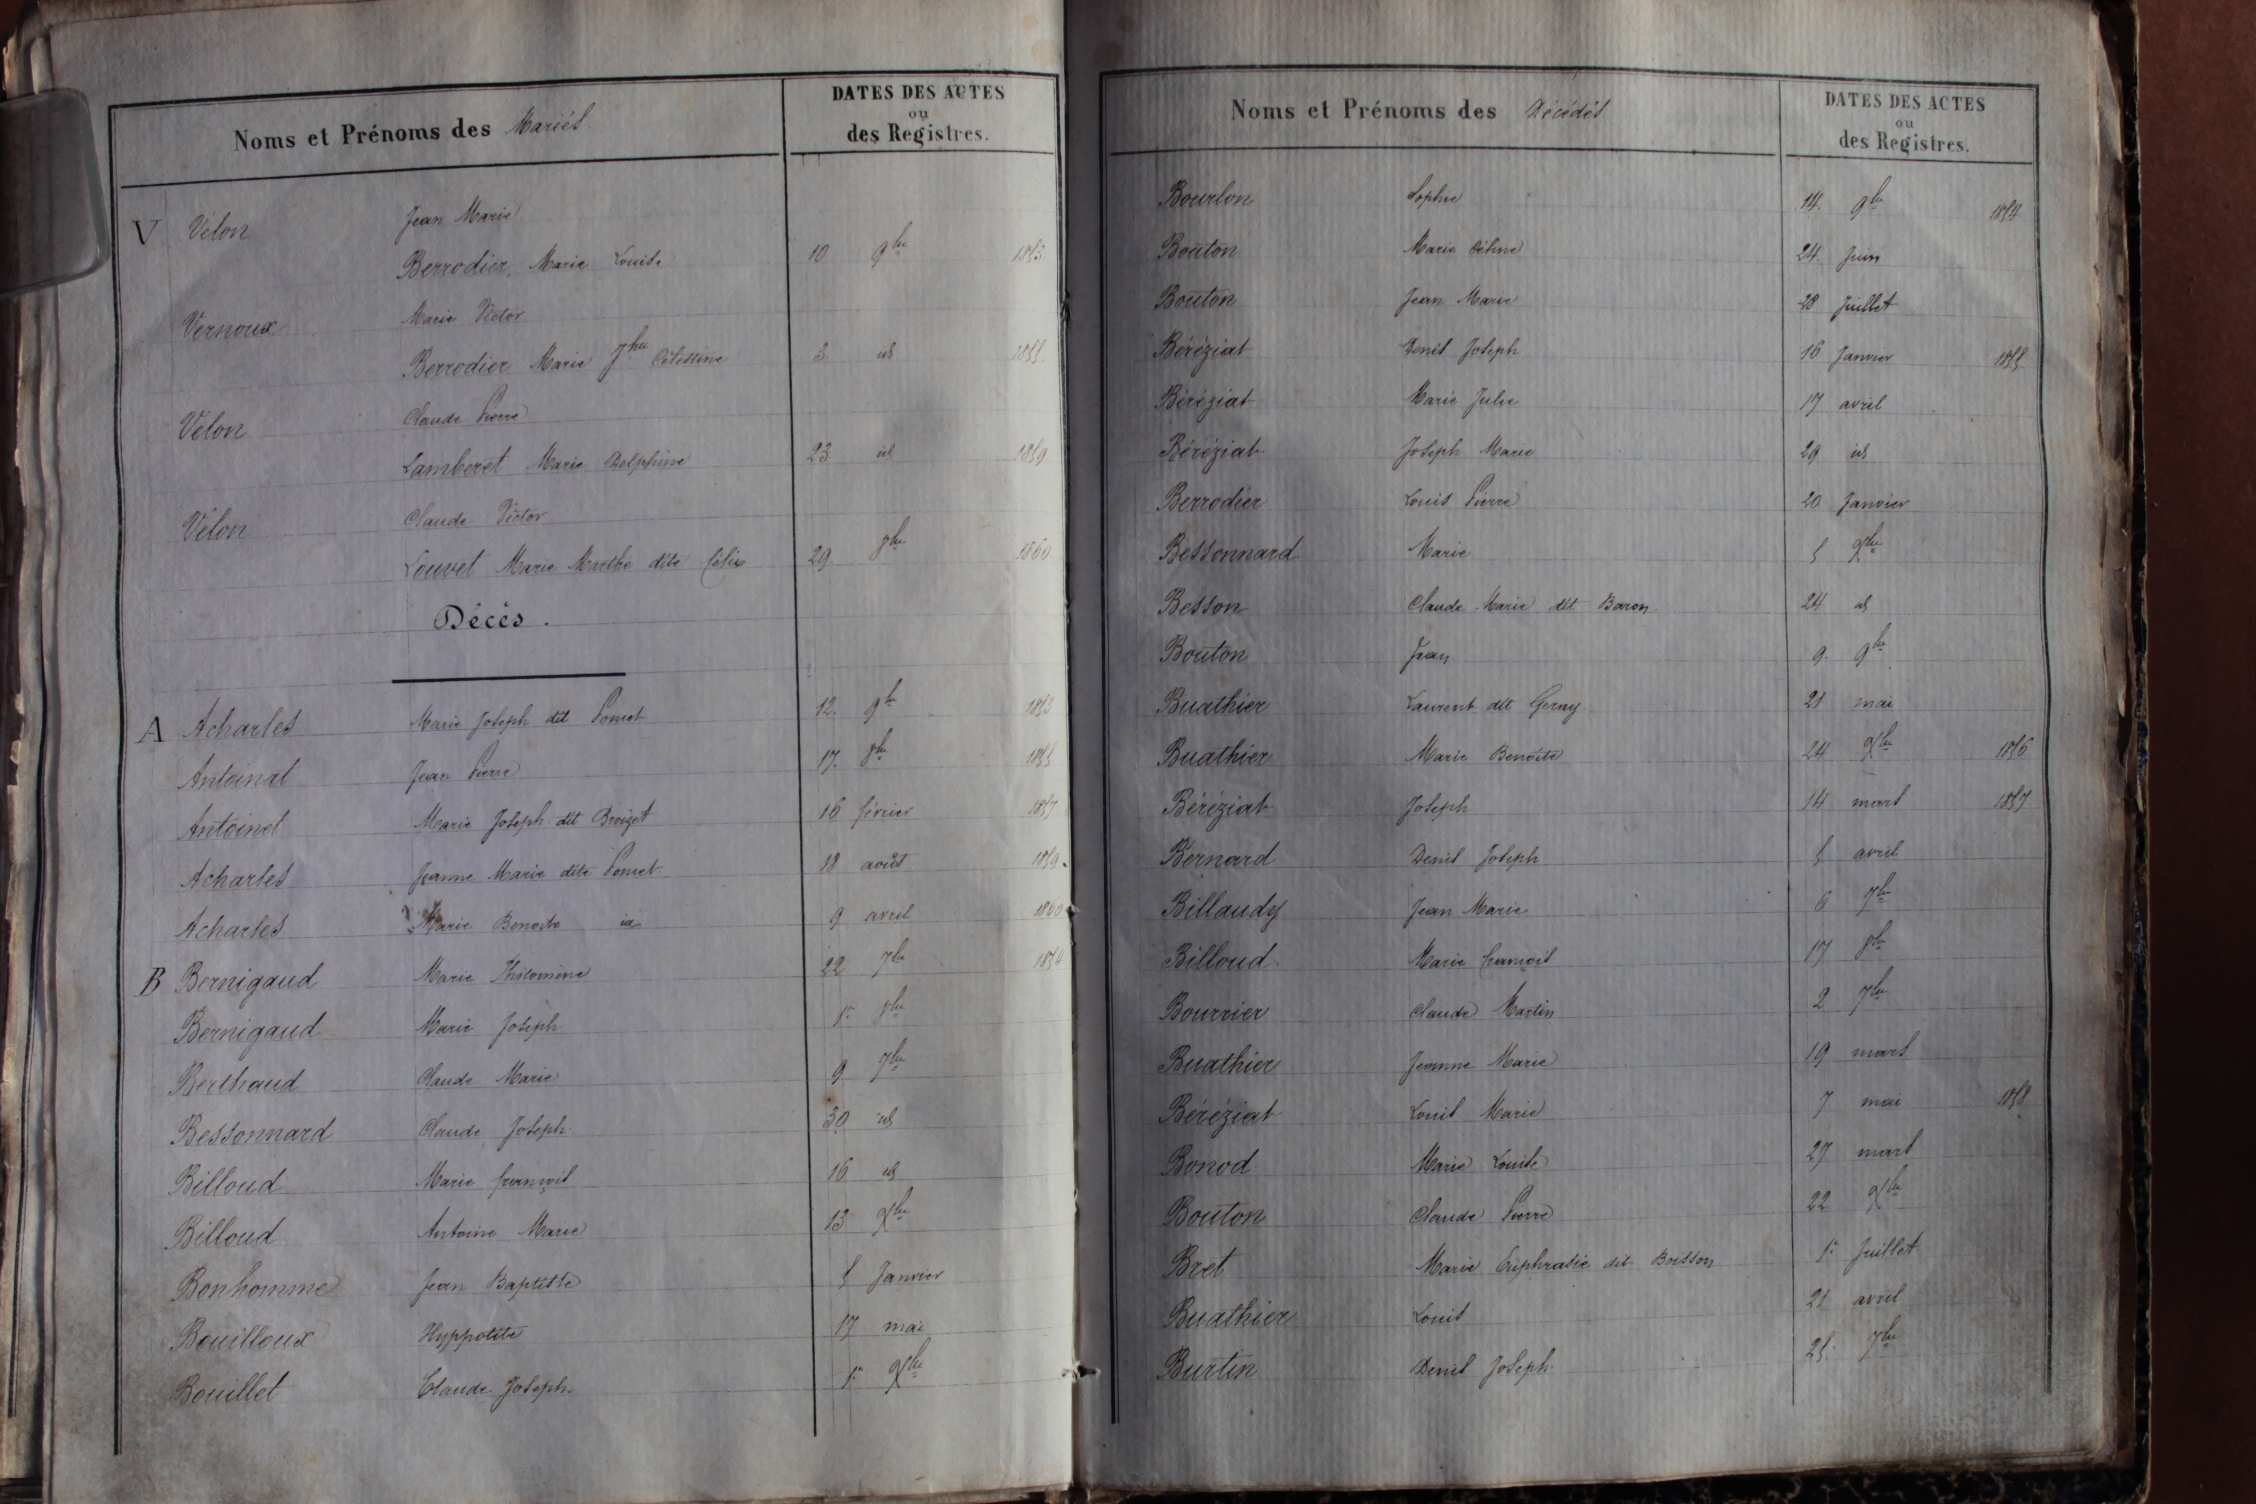 Noms et Prénoms des Mariés
DATES DES ACTES
ou
des Registres.
V Vélon Jean Marie
Berrodier, Marie Louise 10 9bre 1853
Vernoux Marie Victor
Berrodier Marie Jhe Célestine 3 id 1855
Vélon Claude Pierre
Lamberet Marie Delphine 23 id 1859
Vélon Claude Victor
Louvet Marie Marthe dite 29 8bre 1860
Décès.
A Acharles Marie Joseph dit Pomet 12 9bre 1853
Antoinat Jean Pierre 17. 8bre 1855
Antoinet Marie Joseph dit 16 février 1857
Acharles Jeanne Marie dite Pomet 18 août 1859
Acharles Marie Benoite id 9 avril 1860
B Bernigaud Marie Philomène 22 7bre 1854
Bernigaud Marie Joseph 1er 8bre
Berthaud Claude Marie 9 7bre
Bessonnard Claude Joseph 30 id
Billoud Marie françois 16 id
Billoud Antoine Marie 13 Xbre
Bonhomme Jean Baptiste 5 Janvier
Bouilloux Hyppolite 17 mai
Bouillet Claude Joseph 1er Xbre
Noms et Prénoms des Décédés
DATES DES ACTES
ou
des Registres.
Bourlon Sophie 14. 9bre 1854
Bouton Marie Céline 24 Juin
Bouton Jean Marie 28 Juillet
Béréziat Denis Joseph 16 Janvier 1855
Béréziat Marie Julie 17 avril
Béréziat Joseph Marie 29 id
Berrodier Louis Pierre 20 Janvier
Bessonnard Marie 5 Xbre
Besson Claude Marie dit Baron 24 id
Bouton Jean 9. 9bre
Buathier Laurent dit 21 mai
Buathier Marie Benoite 24 Xbre 1856
Béréziat Joseph 14 mars 1857
Bernard Denis Joseph 5 avril
Billaudy Jean Marie 6 7bre
Billoud Marie françois 17 8bre
Bourrier Claude Martin 2 7bre
Buathier Jeanne Marie 19 mars
Béréziat Louis Marie 7 mai 1858
Bonod Marie Louise 27 mars
Bouton Claude Pierre 22 Xbre
Bret Marie Euphrasie dit Boisson 1er Juillet
Buathier Louis 21 avril
Burtin Denis Joseph 25. 7bre